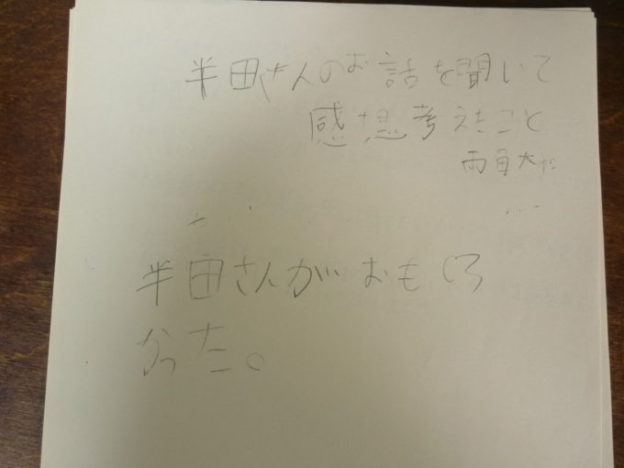 半田さんのお話を聞いて
感想考えたこと
半田さんがおもしろ
かった。